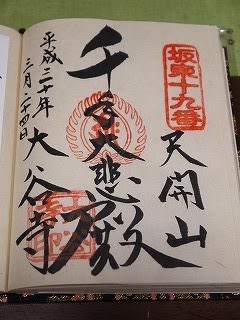 坂東十九番
天開山
千手大悲殿
大谷寺
平成三十年
三月二十四日